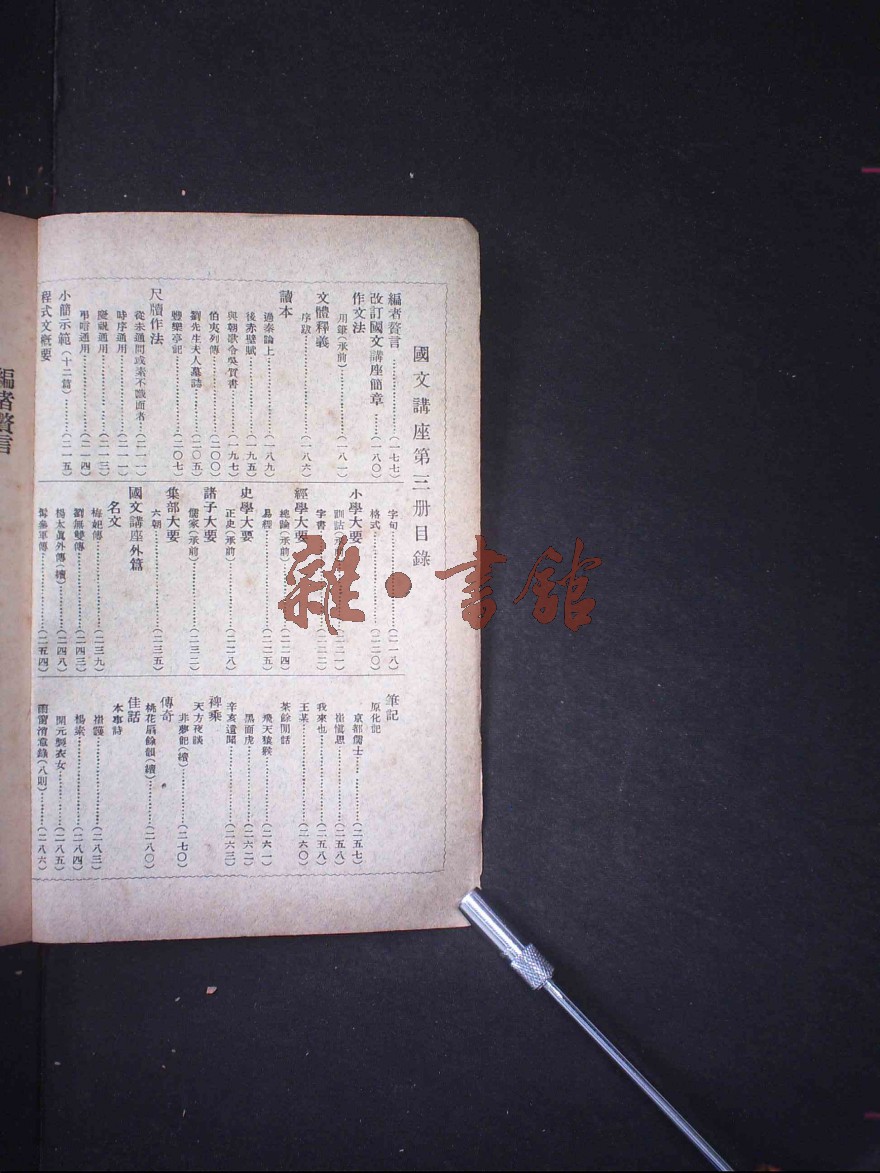 國文講座第三册目錄
編者贅言…………(一七七)
改訂國文講座簡章……(一八〇)
作文法
用筆(承前)…………(一八一)
文體釋義
序跋…………(一八六)
讀本
過秦論上…………(一八九)
後赤壁賦…………(一九五)
與朝歌令吳質書…………(一九七)
伯夷列傳…………(二〇〇)
劉先生夫人墓誌…………(二〇五)
豐樂亭記…………(二〇七)
尺牘作法
從未通問或素不識面者……(二一一)
時序通用…………(二一一)
慶祝通用…………(二一三)
弔唁通用…………(二一四)
小簡示範(十二篇)…………(二一五)
程式文概要
字句…………(二一八)
格式…………(二二〇)
小學大要
訓詁(承前)…………(二二一)
字書…………(二二二)
經學大要
總論(承前)…………(二二四)
易經…………(二二五)
史學大要
正史(承前)…………(二二八)
諸子大要
儒家(承前)…………(二三二)
集部大要
六朝…………(二三五)
國文講座外篇
名文
梅妃傳…………(二三九)
劉無雙傳…………(二四三)
楊太眞外傳(續)…………(二四八)
髯參軍傳…………(二五四)
筆記
原化記
京都儒士…………(二五七)
崔愼思…………(二五八)
我來也…………(二五八)
王某…………(二六〇)
茶餘閒話
飛天猿猴…………(二六一)
黑面虎…………(二六二)
辛亥遺聞…………(二六三)
稗乘
天方夜談
非夢記(續)…………(二七〇)
傳奇
桃花扇餘韻(續)…………(二八〇)
佳話
本事詩
崔護…………(二八三)
楊素…………(二八四)
開元製衣女…………(二八五)
雨窗消意錄(八則)…………(二八六)
編者贅言
雜·書館